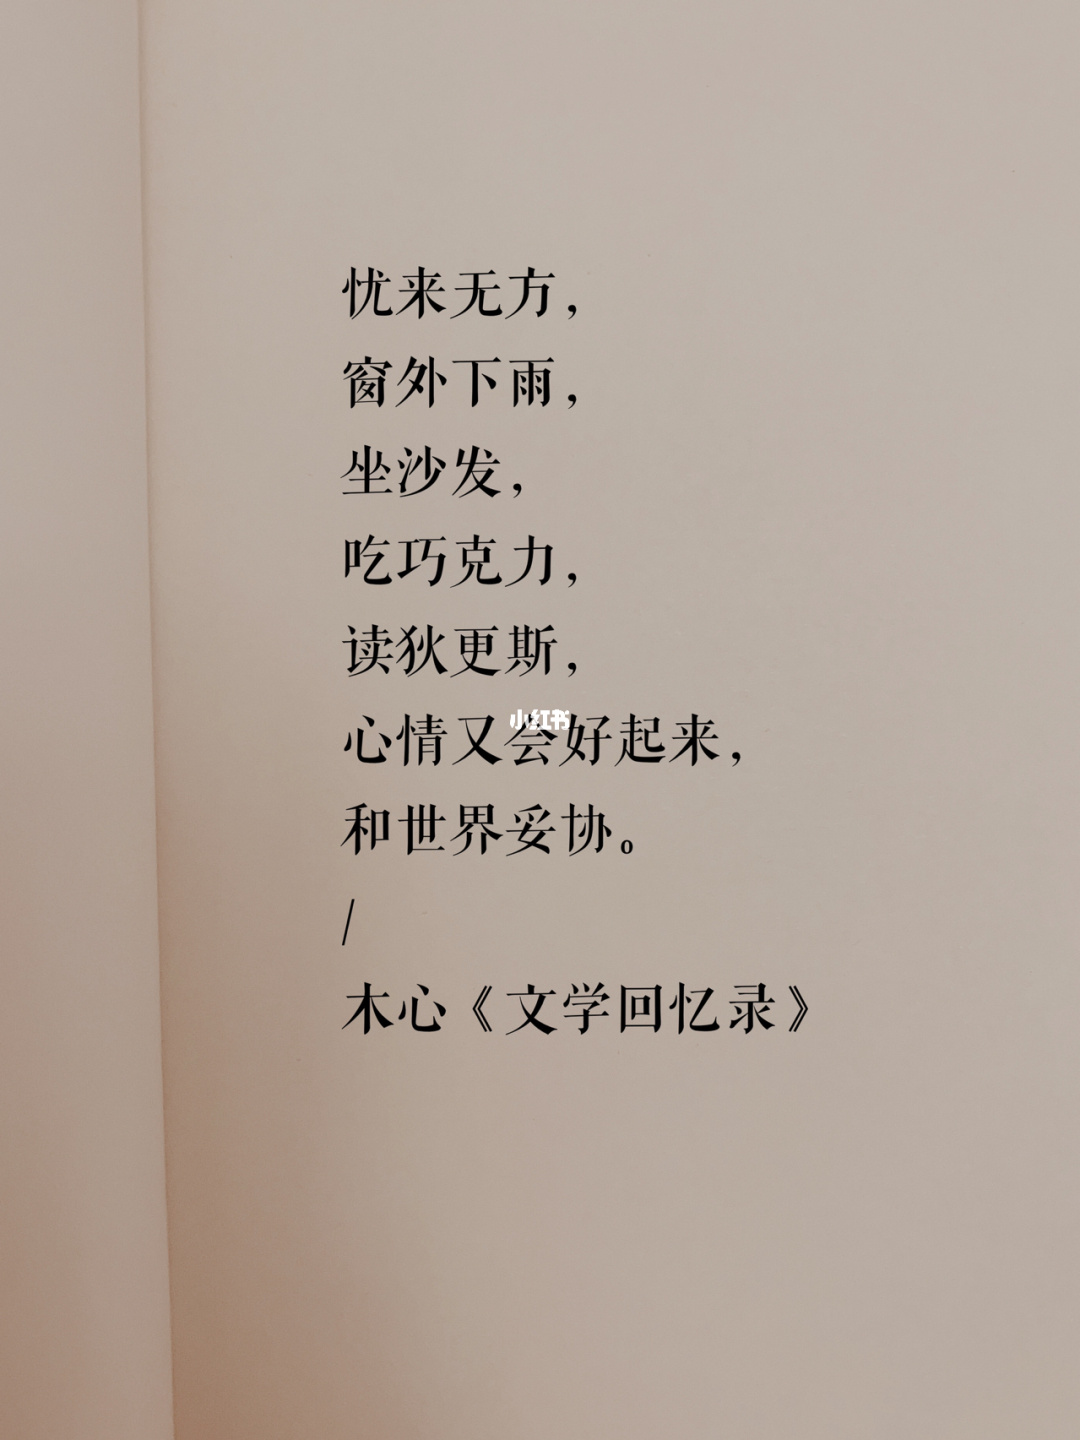 忧来无方，
窗外下雨，
坐沙发，
吃巧克力，
读狄更斯，
小红书
心情又会好起来，
和世界妥协。
/
木心《文学回忆录》